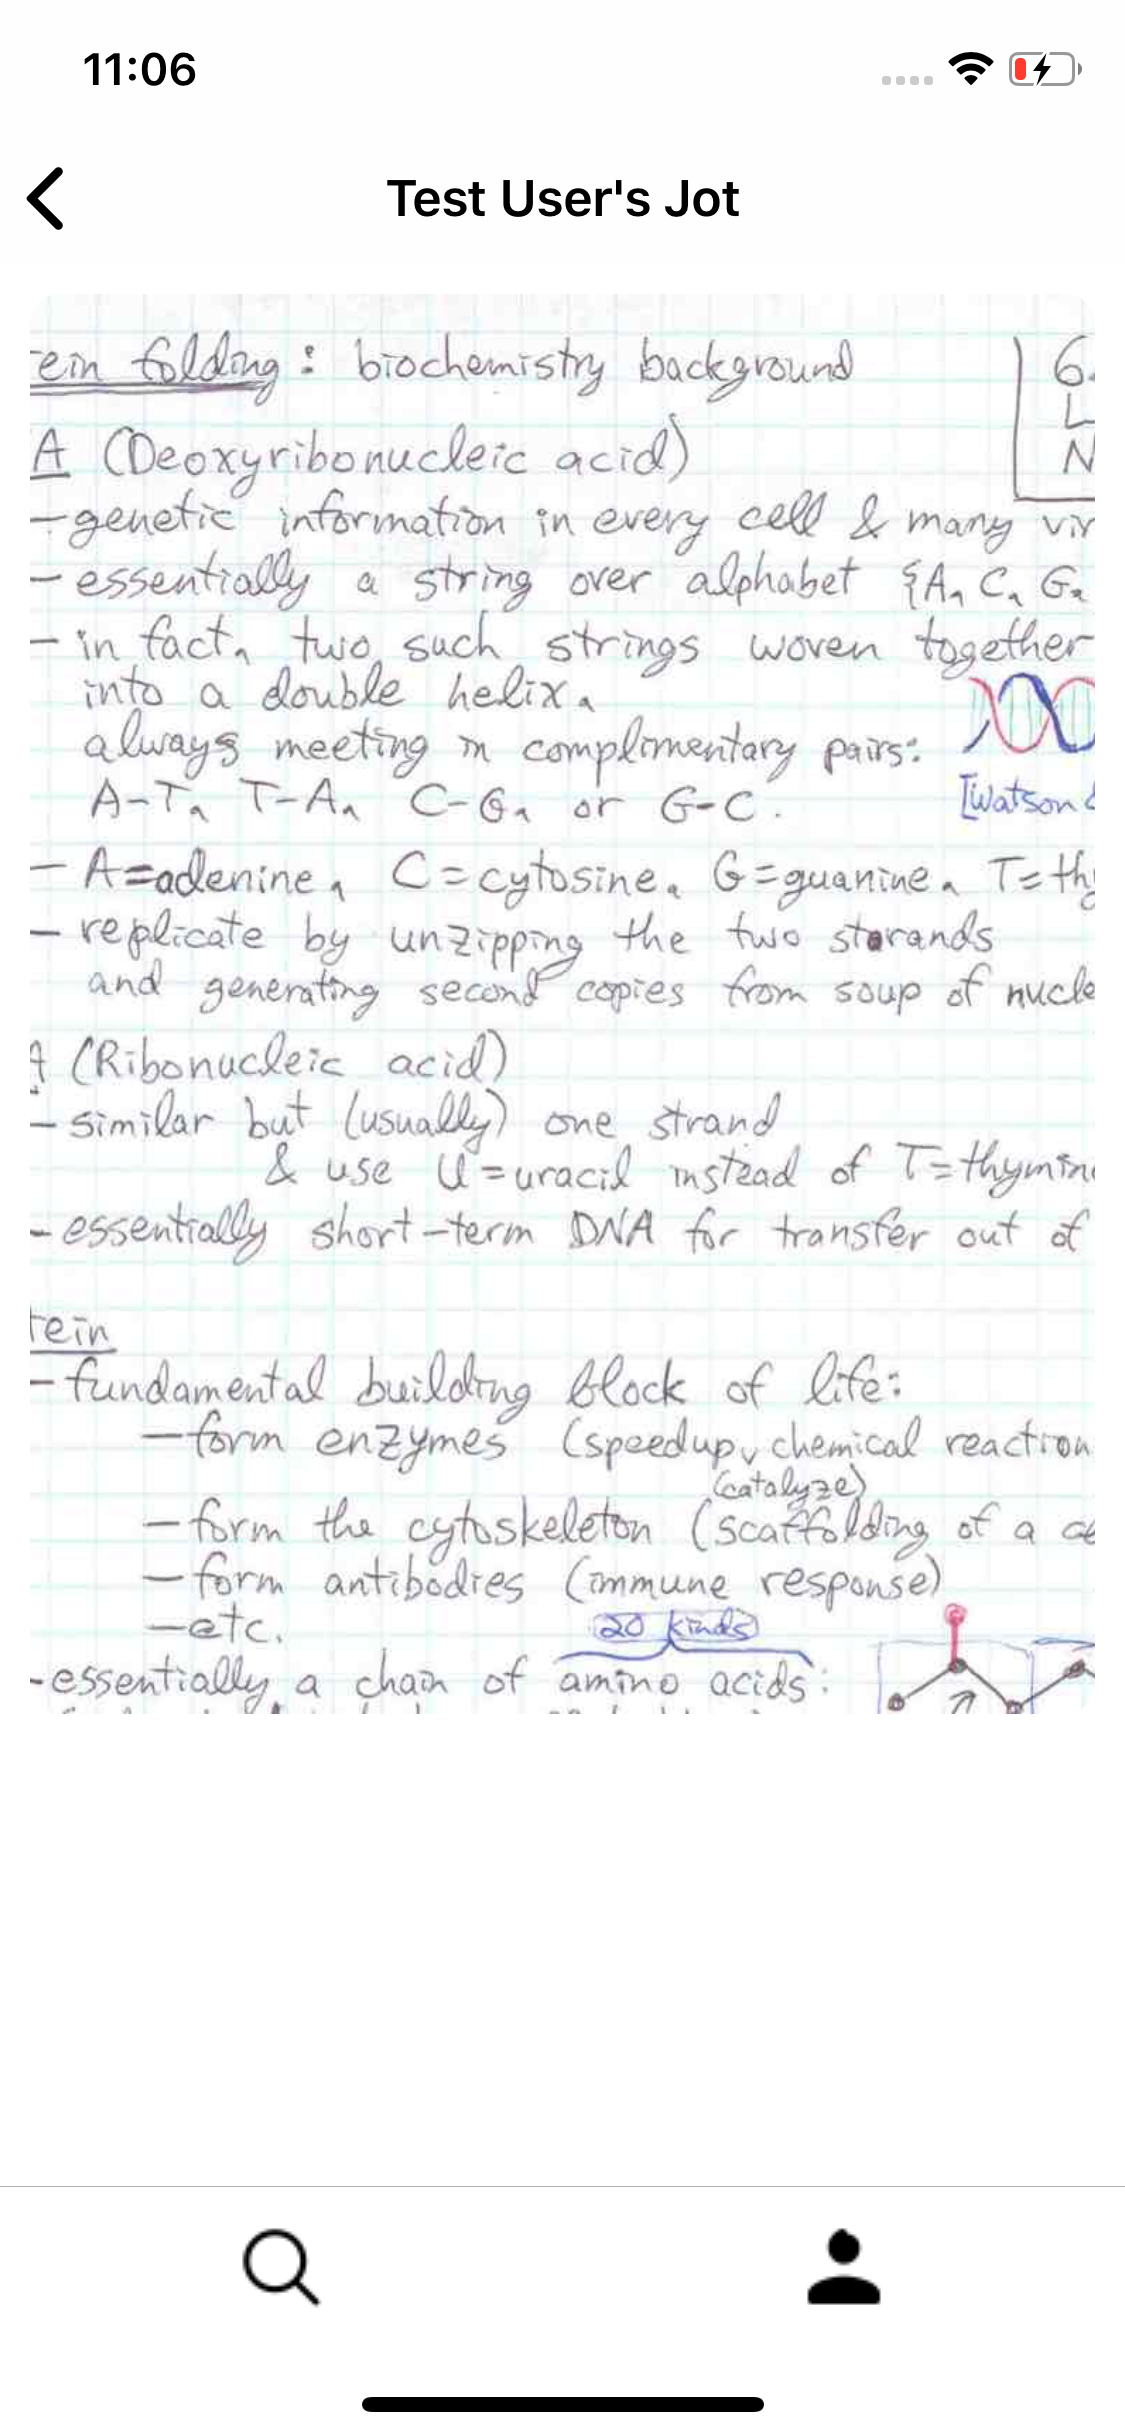 11:06
Test User's Jot
ein folding: biochemistry background
6.
L
N
A (Deoxyribonucleic acid)
- genetic information in every cell & many vir
- essentially a string over alphabet {A, C, G,
- in fact, two such strings woven together
into a double helix,
always meeting in complimentary pairs:
A-T, T-A, C-G, or G-C.
[Watson &
- A=adenine, C=cytosine, G=guanine, T=thy
- replicate by unzipping the two storands
and generating second copies from soup of nucle
A (Ribonucleic acid)
- similar but (usually) one strand
& use U=uracil instead of T=thymine
- essentially short-term DNA for transfer out of
tein
- fundamental building block of life:
- form enzymes (speedup chemical reaction
(catalyze)
- form the cytoskeleton (scaffolding of a ce
- form antibodies (immune response)
- etc.
20 kinds
- essentially a chain of amino acids: